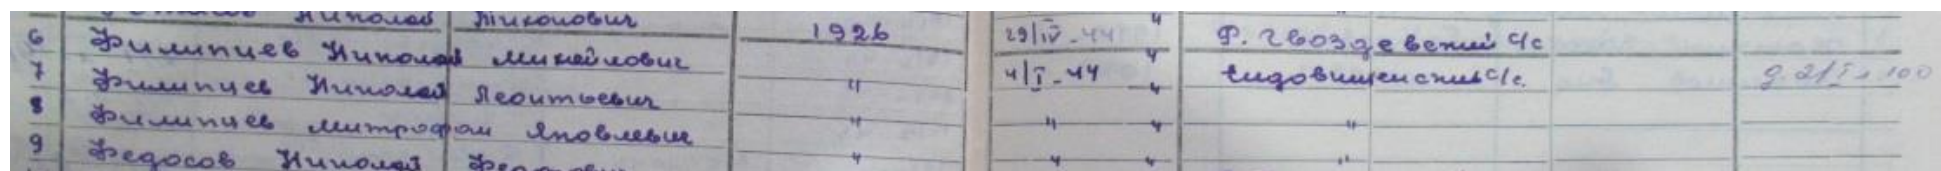 Николай Тихонович "
6 Филипцев Николай Михайлович 1926 29/IV-44 " Ф. Гвоздевский с/с
7 Филипцев Николай Леонтьевич " 4/I-44 " с/с. д. 2/I
8 Филипцев Митрофан Яковлевич " " " "
9 Федосов Николай " " " "